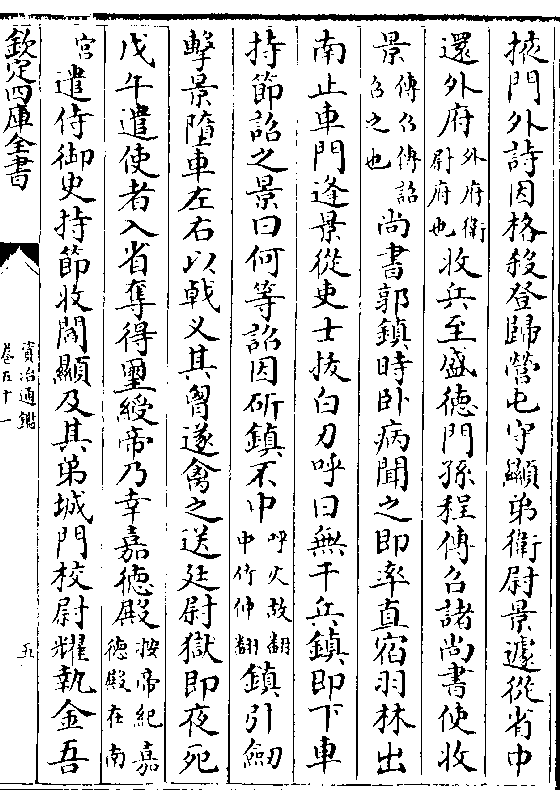 掖門外詩因格殺登歸營屯守顯弟衛尉景遽從省中
還外府外府衛尉府也收兵至盛德門孫程傳召諸尚書使收
景傳召傳詔召之也尚書郭鎮時卧病聞之即率直宿羽林出
南止車門逢景從吏士拔白刃呼曰無干兵鎮即下車
持節詔之景曰何等詔因斫鎮不中呼火故翻中竹仲翻鎮引劒
擊景墮車左右以戟义其胷遂禽之送廷尉獄即夜死
戊午遣使者入省奪得璽綬帝乃幸嘉德殿按帝紀嘉德殿在南
宮遣侍御史持節收閻顯及其弟城門校尉耀執金吾
欽定四庫全書
資治通鑑
卷五十一
五